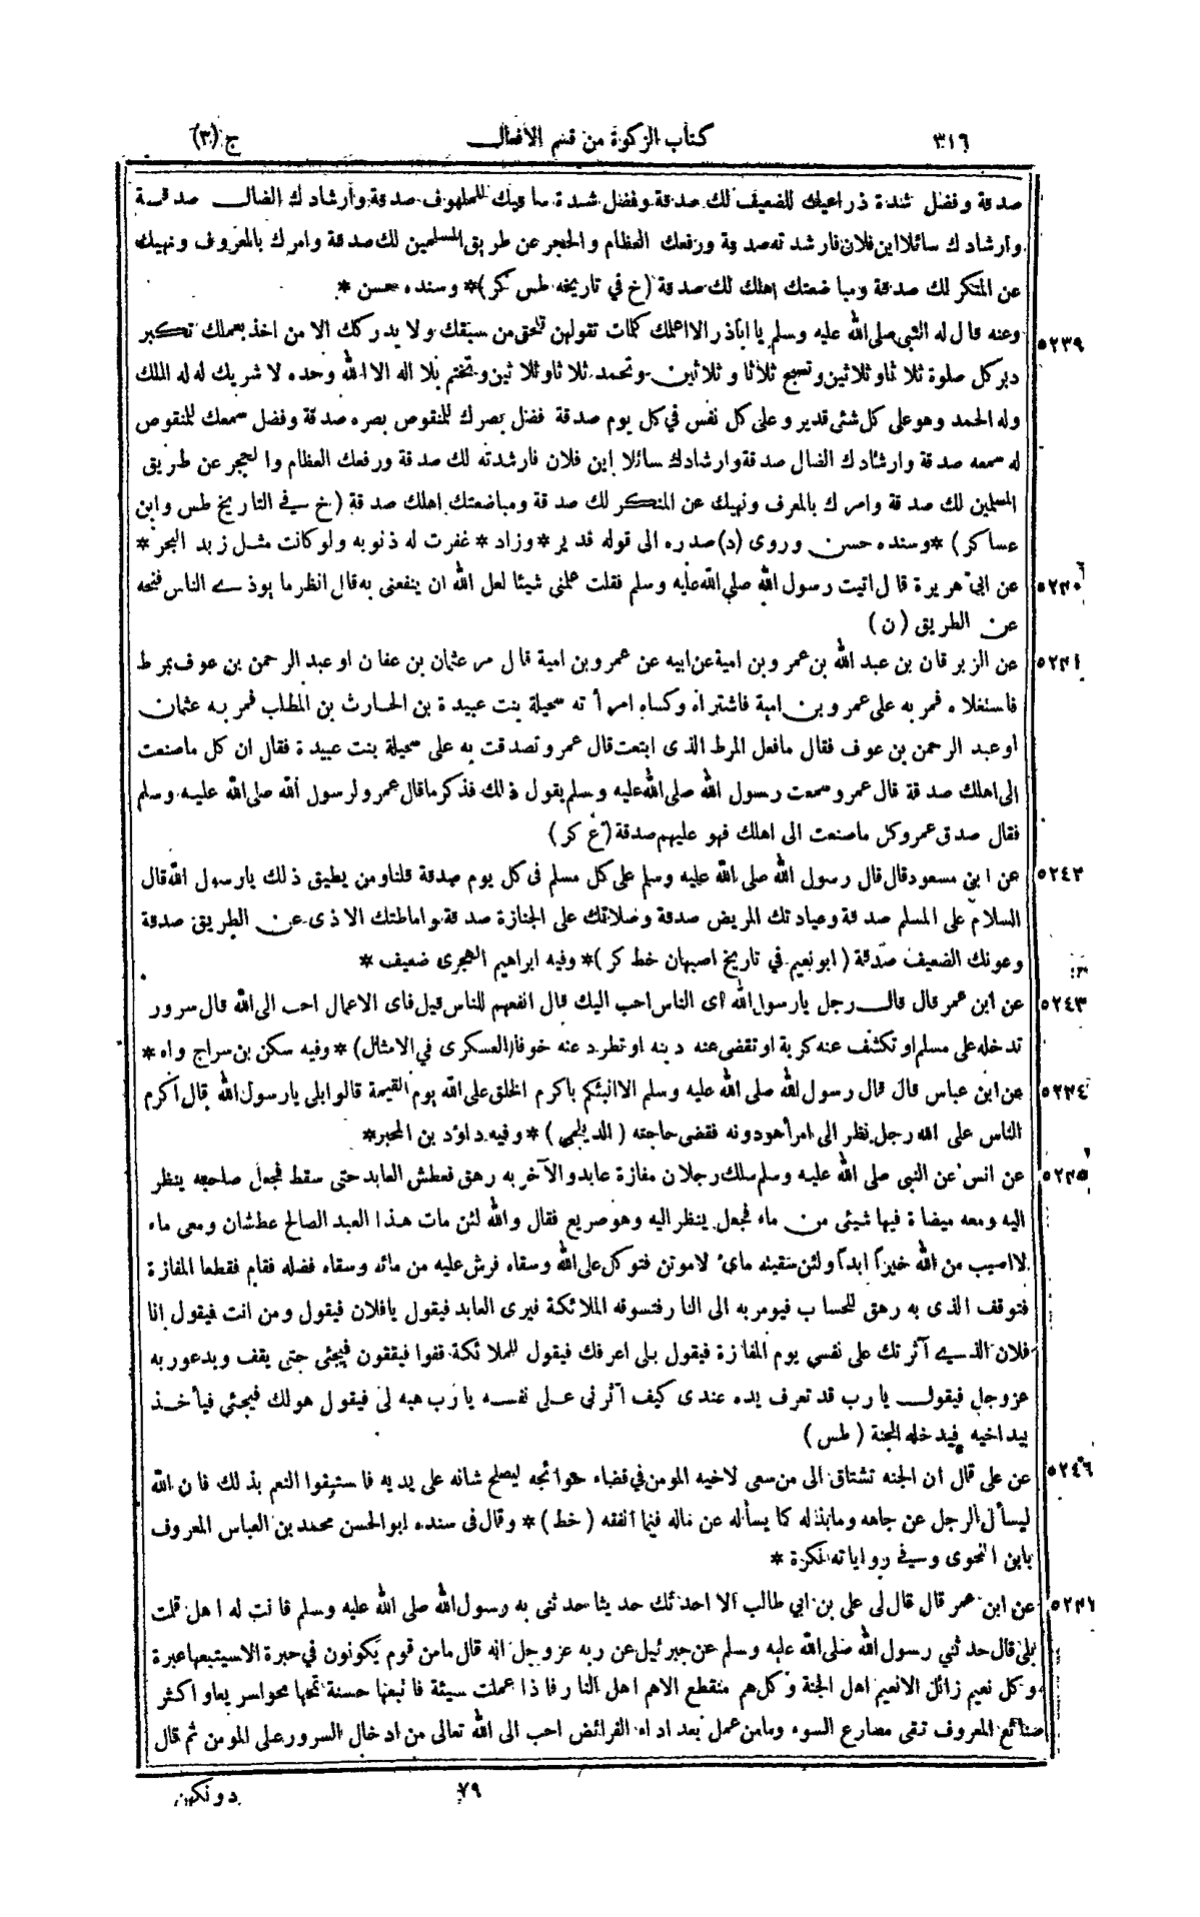 ٣١٦ كتاب الزكوة من قسم الافعال ج (٣)
صدقة وفضل شدة ذراعيك للضعيف لك صدقة وفضل شدة ساقيك للملهوف صدقة وارشادك الضال صدقة
وارشادك سائلا اين فلان فارشدته صدقة ورفعك العظام والحجر عن طريق المسلمين لك صدقة وامرك بالمعروف ونهيك
عن المنكر لك صدقة ومباضعتك اهلك لك صدقة (خ في تاريخه طس كر)* وسنده حسن *
٥٢٣٩ وعنه قال له النبي صلى الله عليه وسلم يا اباذر الا اعلمك كلمات تقولهن تلحق من سبقك ولا يدركك الا من اخذ بعملك تكبر
دبر كل صلوة ثلاثا وثلاثين وتسبح ثلاثا وثلاثين وتحمد ثلاثا وثلاثين وتختم بلا اله الا الله وحده لا شريك له له الملك
وله الحمد وهو على كل شئ قدير وعلى كل نفس في كل يوم صدقة فضل بصرك للمنقوص بصره صدقة وفضل سمعك للمنقوص
له سمعه صدقة وارشادك الضال صدقة وارشادك سائلا اين فلان فارشدته لك صدقة ورفعك العظام والحجر عن طريق
المسلمين لك صدقة وامرك بالمعرف ونهيك عن المنكر لك صدقة ومباضعتك اهلك صدقة (خ في التاريخ طس وابن
عساكر) *وسنده حسن وروى (د) صدره الى قوله قدير * وزاد * غفرت له ذنوبه ولو كانت مثل زبد البحر *
٥٢٤٠ عن ابي هريرة قال اتيت رسول الله صلى الله عليه وسلم فقلت علمني شيئا لعل الله ان ينفعني به قال انظر ما يوذے الناس فنحه
عن الطريق (ن)
٥٢٤١ عن الزبرقان بن عبد الله بن عمرو بن امية عن ابيه عن عمرو بن امية قال مر عثمان بن عفان او عبد الرحمن بن عوف بمرط
فاستغلاه فمر به على عمرو بن امية فاشتراه وكساه امرأته سحيلة بنت عبيدة بن الحارث بن المطلب فمر به عثمان
او عبد الرحمن بن عوف فقال مافعل المرط الذى ابتعت قال عمرو تصدقت به على سحيلة بنت عبيدة فقال ان كل ماصنعت
الى اهلك صدقة قال عمرو سمعت رسول الله صلى الله عليه وسلم يقول ذلك فذكر ماقال عمرو لرسول الله صلى الله عليه وسلم
فقال صدق عمرو كل ماصنعت الى اهلك فهو عليهم صدقة (ع كر)
٥٢٤٢ عن ابن مسعود قال قال رسول الله صلى الله عليه وسلم على كل مسلم فى كل يوم صدقة قلنا ومن يطيق ذلك يارسول الله قال
السلام على المسلم صدقة وعيادتك المريض صدقة وصلاتك على الجنازة صدقة واماطتك الاذى عن الطريق صدقة
وعونك الضعيف صدقة (ابونعيم في تاريخ اصبهان خط كر)* وفيه ابراهيم الهجرى ضعيف *
٥٢٤٣ عن ابن عمر قال قال رجل يارسول الله اى الناس احب اليك قال انفعهم للناس قيل فاى الاعمال احب الى الله قال سرور
تدخله على مسلم او تكشف عنه كربة او تقضى عنه دينه او تطرد عنه خوفا (العسكرى في الامثال) * وفيه سكن بن سراج واه *
٥٢٤٤ عن ابن عباس قال قال رسول الله صلى الله عليه وسلم الا انبئكم باكرم الخلق على الله يوم القيمة قالوا بلى يارسول الله قال اكرم
الناس على الله رجل نظر الى امرأ هو دونه فقضى حاجته (الديلمي) * وفيه داؤد بن المحبر*
٥٢٤٥ عن انس عن النبي صلى الله عليه وسلم سلك رجلان مفازة عابد والآخر به رهق فعطش العابد حتى سقط فجعل صاحبه ينظر
اليه ومعه ميضاة فيها شيئى من ماء فجعل ينظر اليه وهو صريع فقال والله لئن مات هذا العبد الصالح عطشان ومعى ماء
لا اصيب من الله خيرا ابدا ولئن سقيته مائ لاموتن فتوكل على الله وسقاه فرش عليه من مائه وسقاه فضله فقام فقطعا المفازة
فتوقف الذى به رهق للحساب فيومر به الى النار فتسوقه الملائكة فيرى العابد فيقول يافلان فيقول ومن انت فيقول انا
فلان الذے آثرتك على نفسي يوم المفازة فيقول بلى اعرفك فيقول للملائكة قفوا فيقفون فيجئى حتى يقف ويدعو ربه
عزوجل فيقول يارب قد تعرف يده عندى كيف آثرني على نفسه يارب هبه لى فيقول هو لك فيجئي فيأخذ
بيد اخيه فيدخله الجنة (طس)
٥٢٤٦ عن على قال ان الجنه تشتاق الى من سعى لاخيه المومن في قضاء حوائجه ليصلح شانه على يديه فاستبقوا النعم بذلك فان الله
ليسأل الرجل عن جاهه ومابذله كما يسأله عن ماله فيما انفقه (خط) * وقال فى سنده ابوالحسن محمد بن العباس المعروف
بابن النحوى وسفے رواياته نكرة *
عن ابن عمر قال قال لى على بن ابي طالب الا احدثك حديثا حدثنى به رسول الله صلى الله عليه وسلم قانت له اهل قلت
بلى قال حدثني رسول الله صلى الله عليه وسلم عن جبرئيل عن ربه عزوجل انه قال مامن قوم يكونون في حبرة الاسيتبعها عبرة
وكل نعيم زائل الانعيم اهل الجنة وكل هم منقطع الاهم اهل النار فاذا عملت سيئة فاتبعها حسنة تمحها محواسريعا واكثر
صنائع المعروف تقى مصارع السوء ومامن عمل بعد اداء الفرائض احب الى الله تعالى من ادخال السرور على المومن ثم قال
٧٩
دونكهن